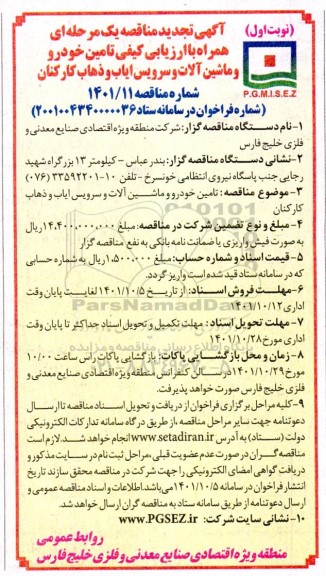 (نوبت اول)
آگهی تجدید مناقصه یک مرحله ای
همراه با ارزیابی کیفی تامین خودرو
و ماشین آلات و سرویس ایاب و ذهاب کارکنان
P.G.M.I.S.E.Z
شماره مناقصه ۱۴۰۱/۱۱
(شماره فراخوان در سامانه ستاد ۲۰۰۱۰۰۴۳۴۰۰۰۰۰۳۶)
۱-نام دستگاه مناقصه گزار: شرکت منطقه ویژه اقتصادی صنایع معدنی و
فلزی خلیج فارس
۲-نشانی دستگاه مناقصه گزار: بندرعباس - کیلومتر ۱۳ بزرگراه شهید
رجایی جنب پاسگاه نیروی انتظامی خونسرخ - تلفن ۱۰-۳۳۵۹۲۲۰۱ (۰۷۶)
۳-موضوع مناقصه: تامین خودرو و ماشین آلات و سرویس ایاب و ذهاب
کارکنان
۴-مبلغ و نوع تضمین شرکت در مناقصه: مبلغ ۱۴,۴۰۰,۰۰۰,۰۰۰ ریال
به صورت فیش واریزی یا ضمانت نامه بانکی به نفع مناقصه گزار
۵-قیمت اسناد و شماره حساب: مبلغ ۱,۵۰۰,۰۰۰ ریال به شماره حسابی
که در سامانه ستاد قید شده است واریز گردد.
۶-مهلت فروش اسناد: از تاریخ ۱۴۰۱/۱۰/۵ لغایت پایان وقت
اداری ۱۴۰۱/۱۰/۱۲
۷-مهلت تحویل اسناد: مهلت تکمیل و تحویل اسناد حداکثر تا پایان وقت
اداری مورخ ۱۴۰۱/۱۰/۲۸
۸-زمان و محل بازگشایی پاکات: بازگشایی پاکات راس ساعت ۱۰/۰۰
مورخ ۱۴۰۱/۱۰/۲۹ در سالن کنفرانس منطقه ویژه اقتصادی صنایع معدنی و
فلزی خلیج فارس صورت خواهد پذیرفت.
۹-کلیه مراحل برگزاری فراخوان از دریافت و تحویل اسناد مناقصه تا ارسال
دعوتنامه جهت سایر مراحل مناقصه، از طریق درگاه سامانه تدارکات الکترونیکی
دولت (ستاد) به آدرس www.setadiran.ir انجام خواهد شد. لازم است
مناقصه گران در صورت عدم عضویت قبلی، مراحل ثبت نام در سایت مذکور و
دریافت گواهی امضای الکترونیکی را جهت شرکت در مناقصه محقق سازند تاریخ
انتشار فراخوان در سامانه ۱۴۰۱/۱۰/۵ می باشد. اطلاعات و اسناد مناقصه عمومی و
ارسال دعوتنامه از طریق سامانه ستاد به مناقصه گران ارسال خواهد شد.
۱۰-نشانی سایت شرکت: www.PGSEZ.ir
روابط عمومی
منطقه ویژه اقتصادی صنایع معدنی و فلزی خلیج فارس